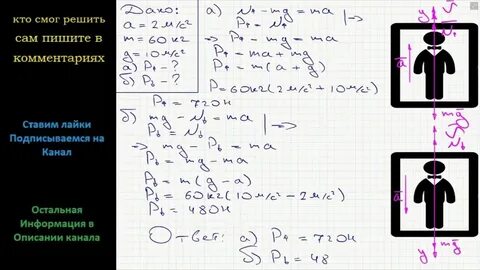 кто смог решить
сам пишите в
комментариях
Ставим лайки
Подписываемся на
Канал
Остальная
Информация в
Описании канала
Дано:
a = 2 м/с²
m = 60 кг
g = 10 м/с²
а) P↑ - ?
б) P↓ - ?
а) N↑ - mg = ma
P↑ = N↑
=> P↑ - mg = ma
P↑ = ma + mg
P↑ = m(a + g)
P = 60кг(2 м/с² + 10 м/с²)
P↑ = 720Н
б) mg - N↓ = ma
P↓ = N↓
=> mg - P↓ = ma
P↓ = mg - ma
P↓ = m(g - a)
P↓ = 60кг(10 м/с² - 2 м/с²)
P↓ = 480Н
Ответ: а) P↑ = 720Н
б) P↓ = 48
y
N↑
a
mg
N↓
a
mg
y